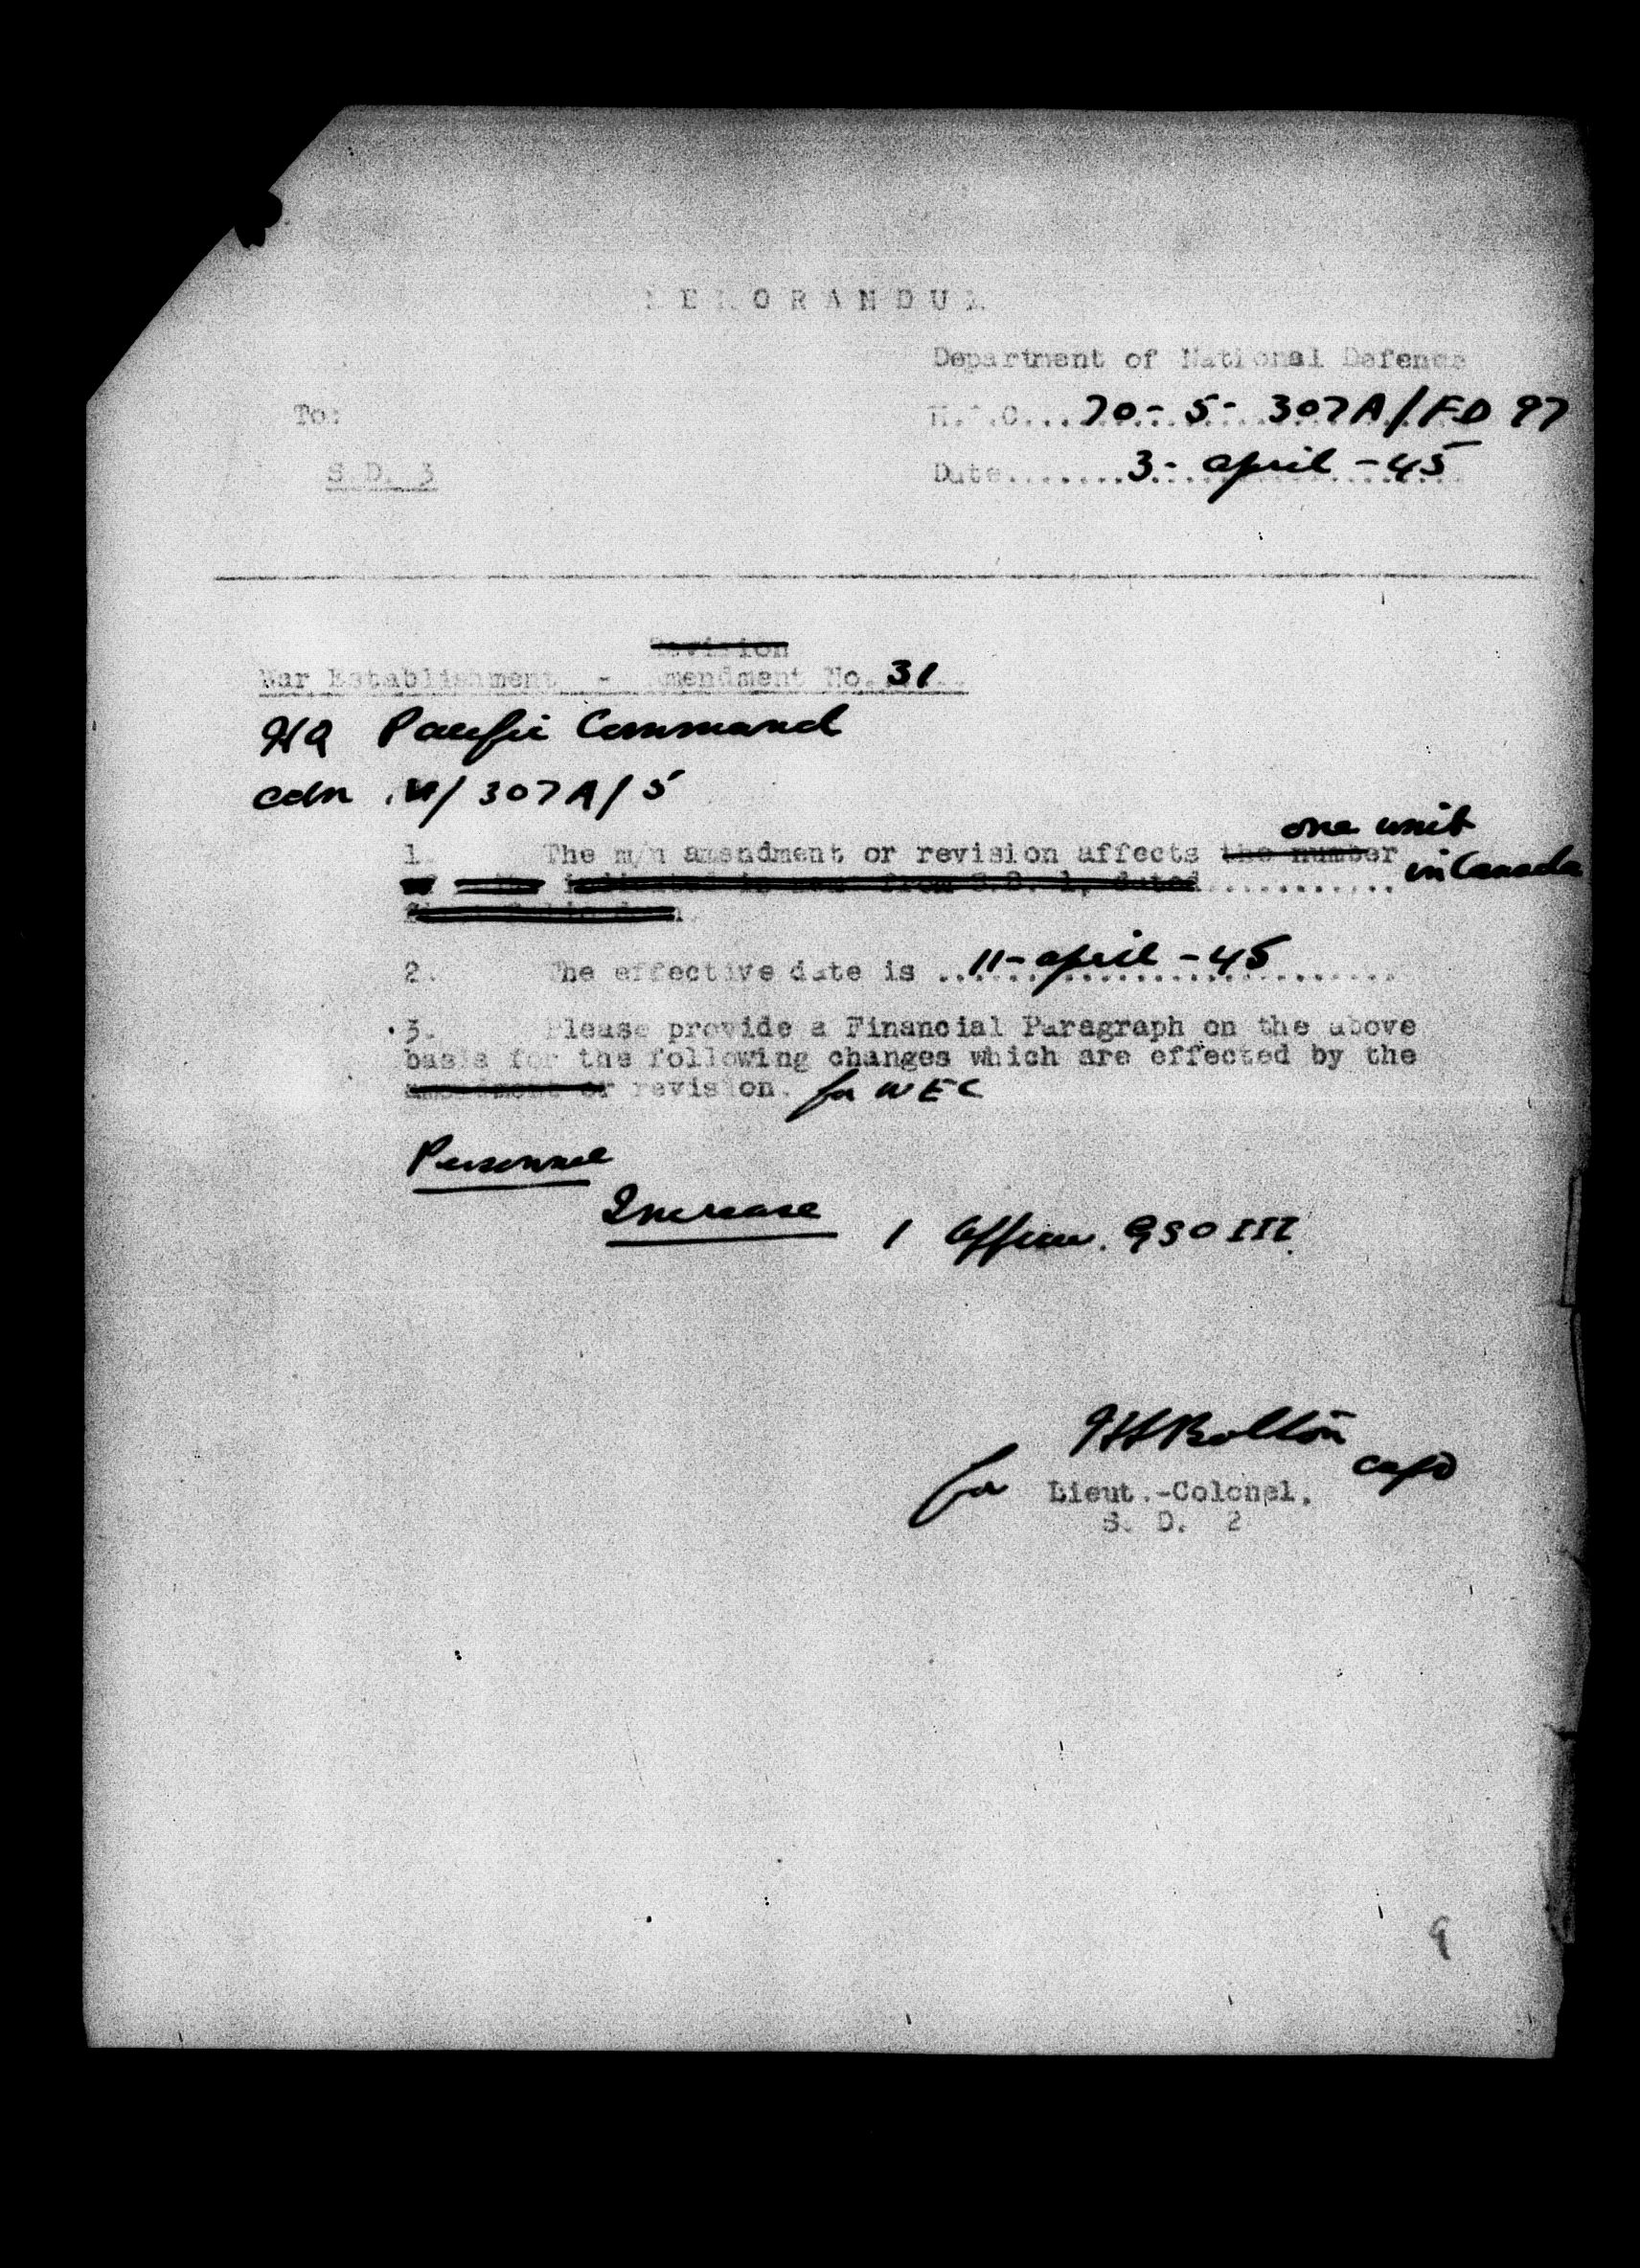 MEMORANDUM
Department of National Defence
To: H.Q.C... 70-5-307A/FD 97
S.D. 3 Date....... 3-april-45
Revision
War Establishment - Amendment No. 31
HQ Pacific Command
Cdn. /307A/5
one unit
1. The m/n amendment or revision affects the number in Canada
from S.D. 1, dated............
2. The effective date is .. 11-april-45
3. Please provide a Financial Paragraph on the above
basis for the following changes which are effected by the
amendment or revision. for WEC
Personnel
Increase 1 Officer. GSO III
Bolton Capt
for Lieut.-Colonel,
S. D. 2
9